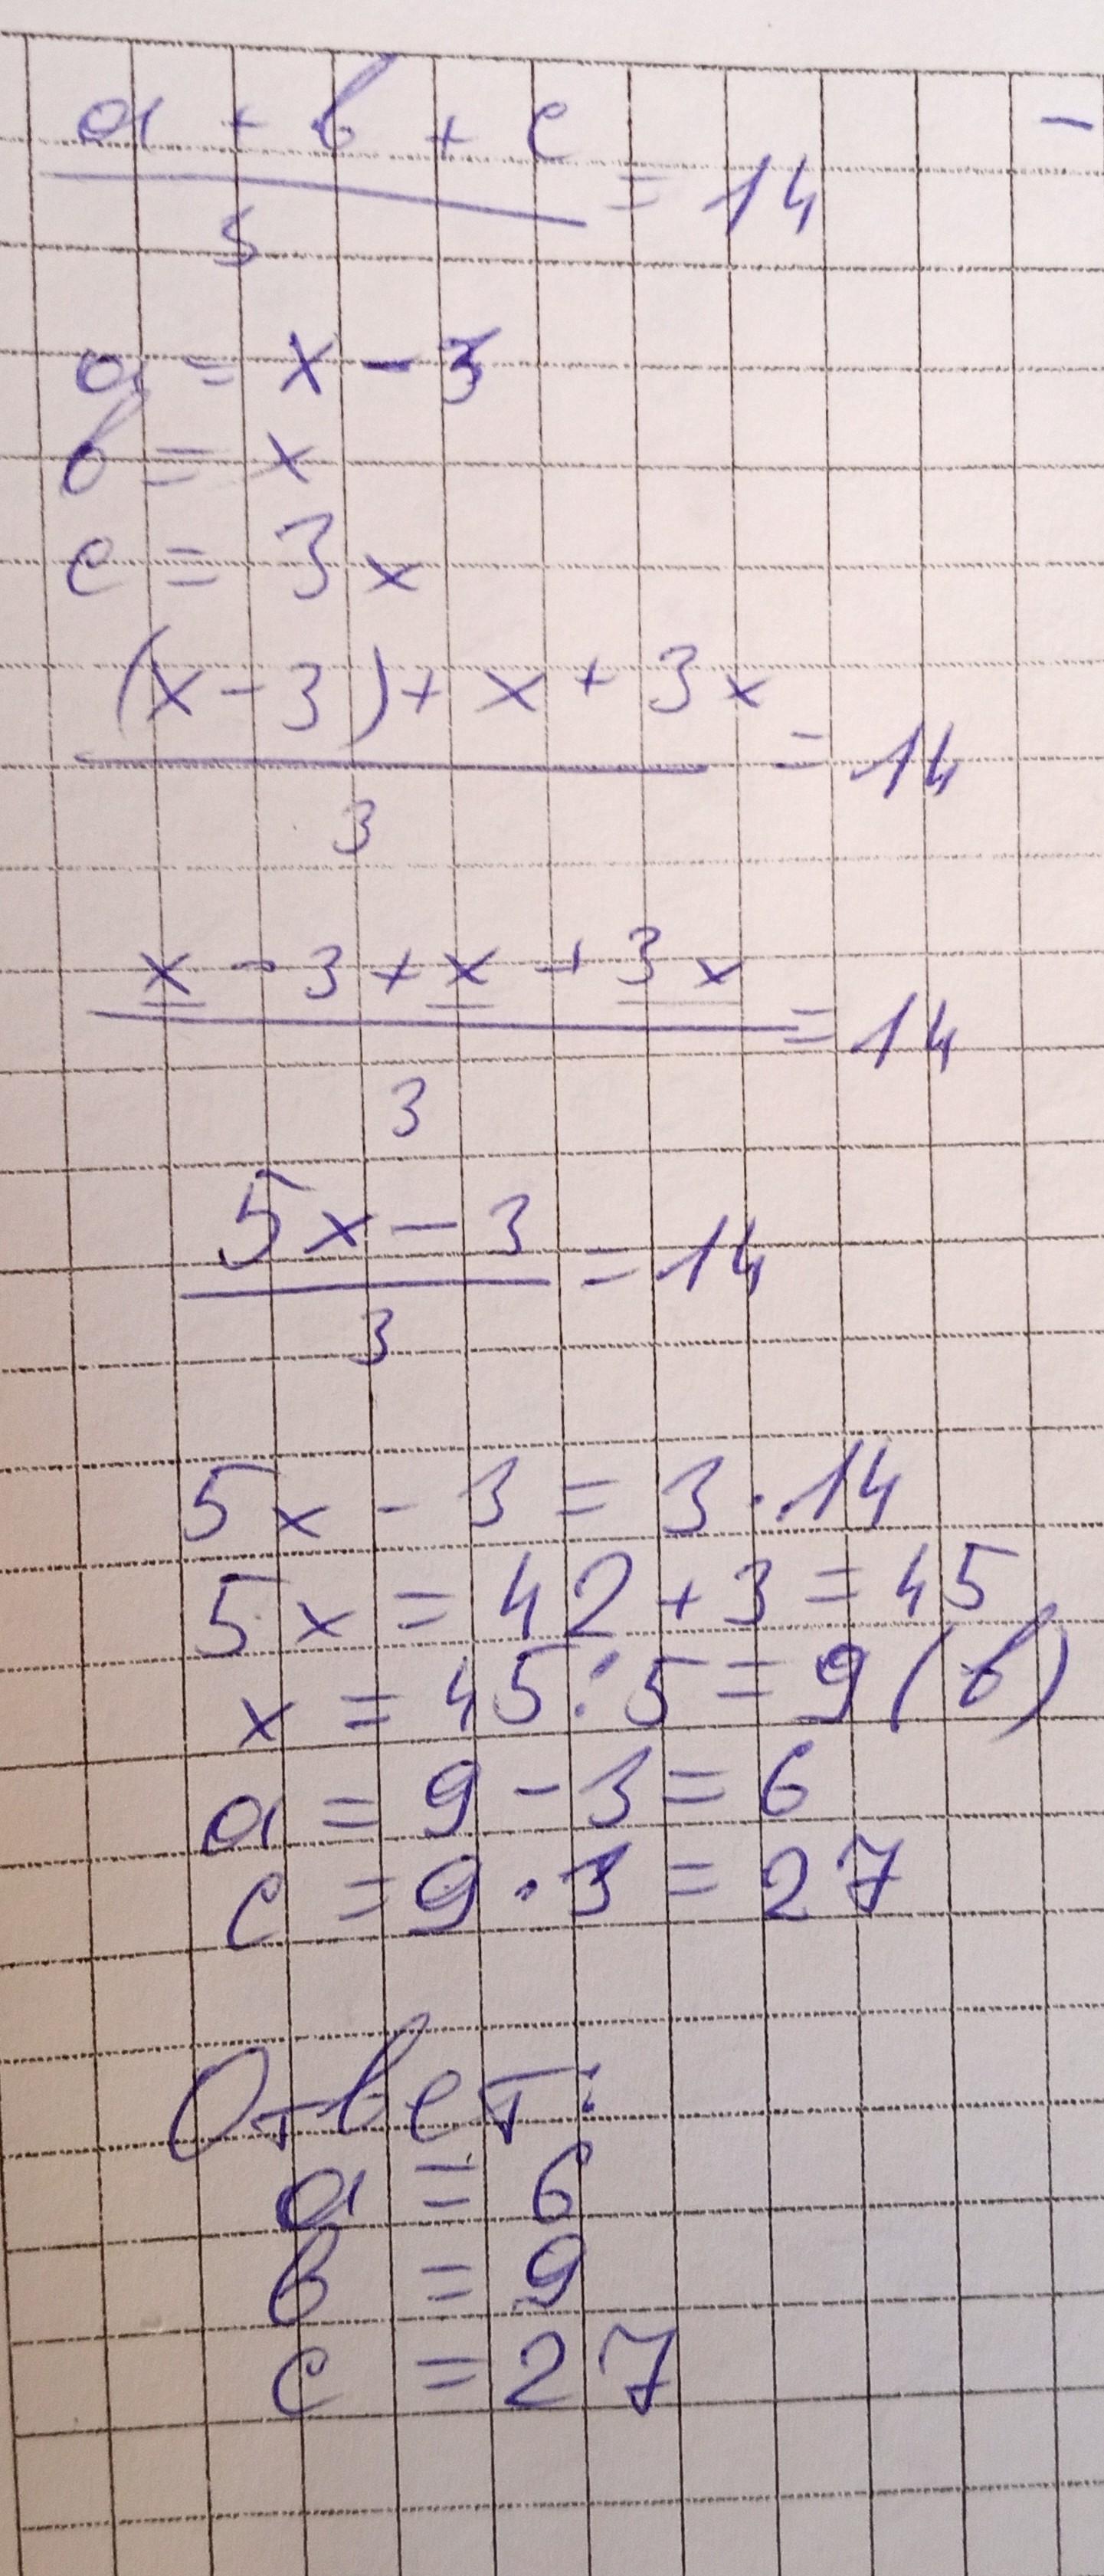 a + b + c / 3 = 14
a = x - 3
b = x
c = 3x
(x - 3) + x + 3x / 3 = 14
x - 3 + x + 3x / 3 = 14
5x - 3 / 3 = 14
5x - 3 = 3 · 14
5x = 42 + 3 = 45
x = 45 : 5 = 9 (b)
a = 9 - 3 = 6
c = 9 · 3 = 27
Ответ:
a = 6
b = 9
c = 27